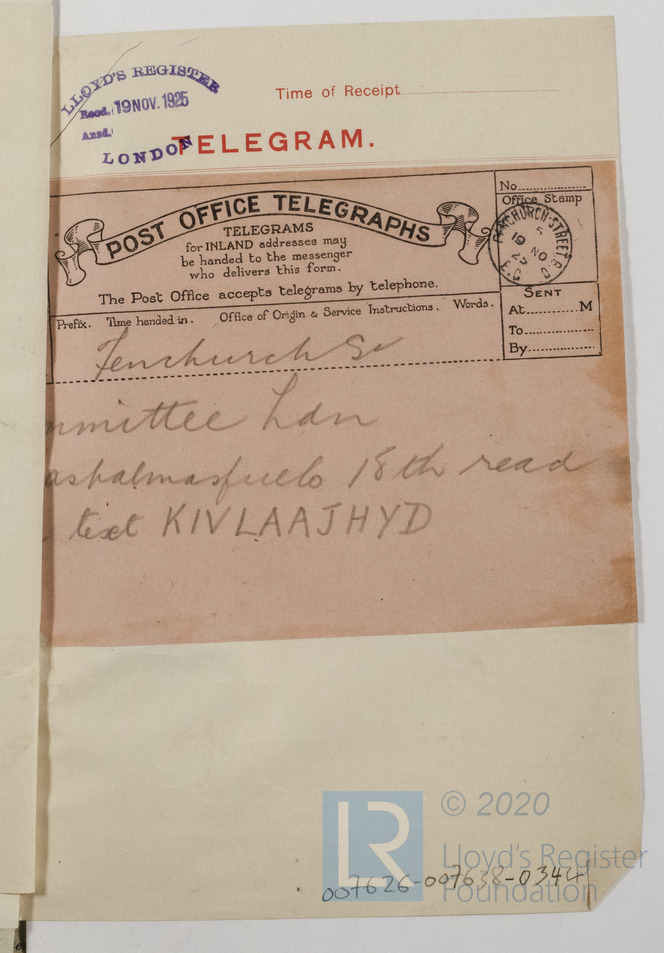 LLOYD'S REGISTER
Recd. 19 NOV. 1925
Ansd.
LONDON
Time of Receipt
TELEGRAM.
POST OFFICE TELEGRAPHS
TELEGRAMS
for INLAND addresses may
be handed to the messenger
who delivers this form.
The Post Office accepts telegrams by telephone.
No.
Office Stamp
FENCHURCH·STREET B.O
5
19 NO
25
E.C
Prefix. Time handed in. Office of Origin & Service Instructions. Words.
SENT
At M
To
By
Fenchurch St
mmittee Ldn
18th read
text KIVLAAJHYD
© 2020
LR
Lloyd's Register
Foundation
007626-007638-0344